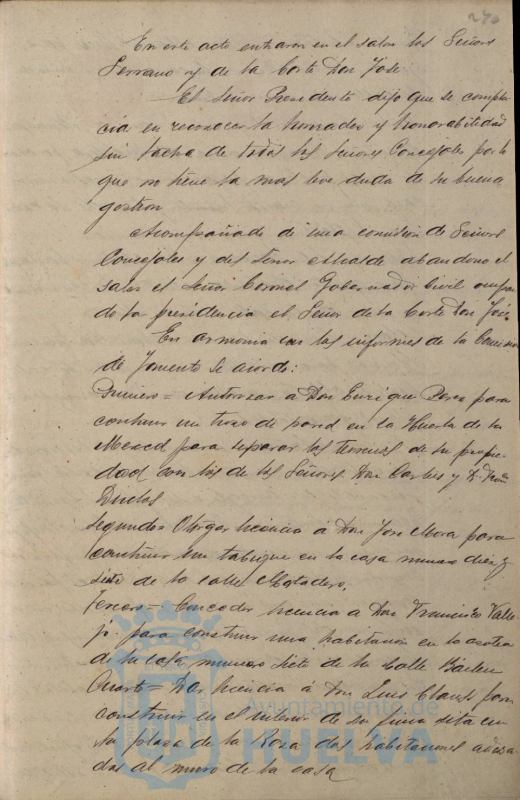 270
En este acto entraron en el salon los Señores
Serrano y de la Corte Don José
El Señor Presidente dijo que se compla-
cia en reconocer la honradez y honorabilidad
sin tacha de todos los Señores Concejales por lo
que no tiene la mas leve duda de su buena
gestion
Acompañado de una comision de Señores
Concejales y del Señor Alcalde abandono el
salon el Señor Coronel Gobernador Civil ocupan
do la presidencia el Señor de la Corte Don José
En armonia con los informes de la Comision
de Fomento se acordo:
Primero = Autorizar a Don Enrique Perez para
construir un trozo de pared en la Huerta de la
Merced para separar los terrenos de su propie-
dad con los de los Señores Don Carlos y D.
Duclos
Segundo Otorgar licencia á Don José Mora para
construir un tabique en la casa numero diez y
siete de la calle Matadero,
Tercero = Conceder licencia a Don Francisco Valle
jo para construir una habitacion en la azotea
de su casa numero siete de la Calle Bailen
Cuarto = Dar licencia á Don Luis para
construir en el interior de su finca sita en
la plaza de la Rosa dos habitaciones adosa
das al muro de la casa
Ayuntamiento de
HUELVA